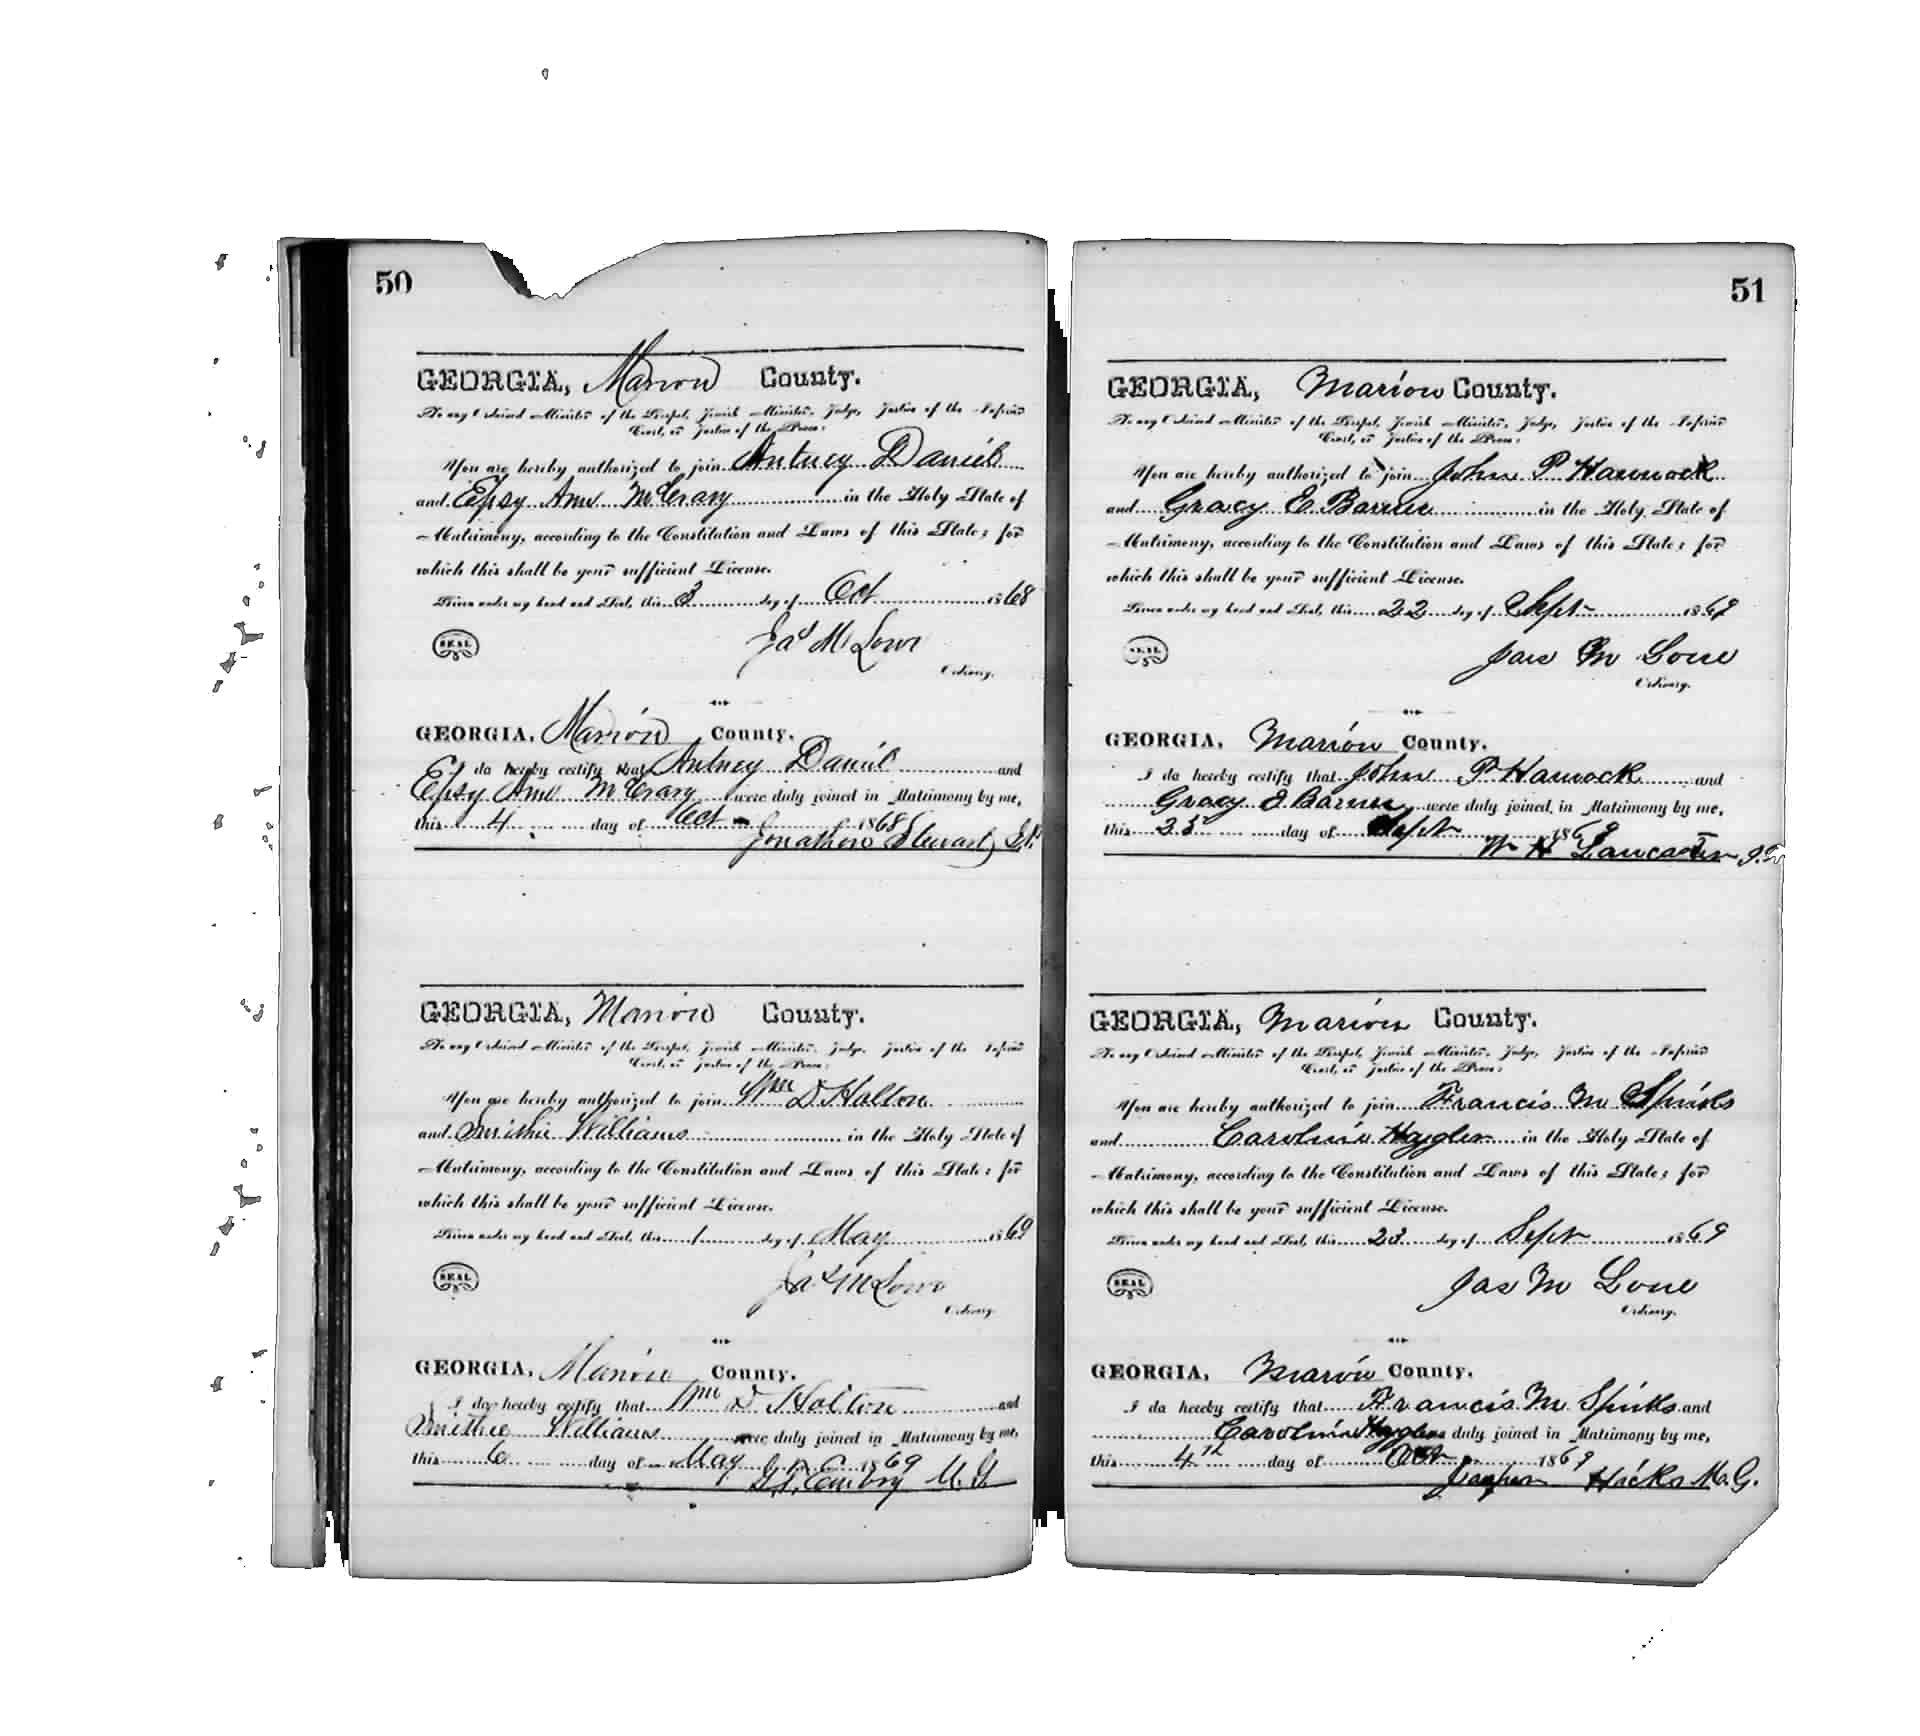 50
GEORGIA, Marion County.
To any Ordained Minister of the Gospel, Jewish Minister, Judge, Justice of the Inferior
Court, or Justice of the Peace:
You are hereby authorized to join Antney Daniel
and Epsy Ann McCrary in the Holy State of
Matrimony, according to the Constitution and Laws of this State; for
which this shall be your sufficient License.
Given under my hand and Seal, this 3 day of Oct 1868
SEAL
Jas M Lowe
Ordinary.
GEORGIA, Marion County.
I do hereby certify that Antney Daniel and
Epsy Ann McCrary were duly joined in Matrimony by me,
this 4 day of Oct 1868
Jonathan Stewart
GEORGIA, Marion County.
To any Ordained Minister of the Gospel, Jewish Minister, Judge, Justice of the Inferior
Court, or Justice of the Peace:
You are hereby authorized to join Wm D Halton
and Smithie Williams in the Holy State of
Matrimony, according to the Constitution and Laws of this State; for
which this shall be your sufficient License.
Given under my hand and Seal, this 1 day of May 1869
SEAL
Jas M Lowe
Ordinary.
GEORGIA, Marion County.
I do hereby certify that Wm D Halton and
Smithie Williams were duly joined in Matrimony by me,
this 6 day of May 1869
Embry M. G.
51
GEORGIA, Marion County.
To any Ordained Minister of the Gospel, Jewish Minister, Judge, Justice of the Inferior
Court, or Justice of the Peace:
You are hereby authorized to join John P Hammock
and Gracy E Barner in the Holy State of
Matrimony, according to the Constitution and Laws of this State; for
which this shall be your sufficient License.
Given under my hand and Seal, this 22 day of Sept 1869
SEAL
Jas M Lowe
Ordinary.
GEORGIA, Marion County.
I do hereby certify that John P Hamock and
Gracy E Barner were duly joined in Matrimony by me,
this 23 day of Sept 1869
W H Lancaster J.P.
GEORGIA, Marion County.
To any Ordained Minister of the Gospel, Jewish Minister, Judge, Justice of the Inferior
Court, or Justice of the Peace:
You are hereby authorized to join Francis M Spinks
and Caroline Haygler in the Holy State of
Matrimony, according to the Constitution and Laws of this State; for
which this shall be your sufficient License.
Given under my hand and Seal, this 23 day of Sept 1869
SEAL
Jas M Lowe
Ordinary.
GEORGIA, Marion County.
I do hereby certify that Francis M Spinks and
Caroline Haygler duly joined in Matrimony by me,
this 4th day of Oct 1869
Jasper Hicks M. G.